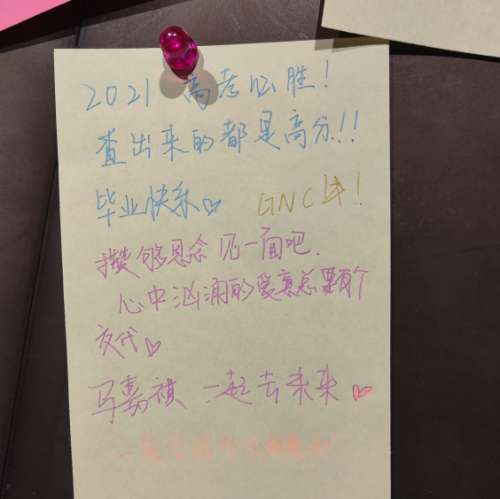 2021 高考必胜!
查出来的都是高分!!
毕业快乐♡ GNC
攒够思念 见一面吧.
心中汹涌的爱意总要有个
交代♡
马嘉祺 一起去未来♡